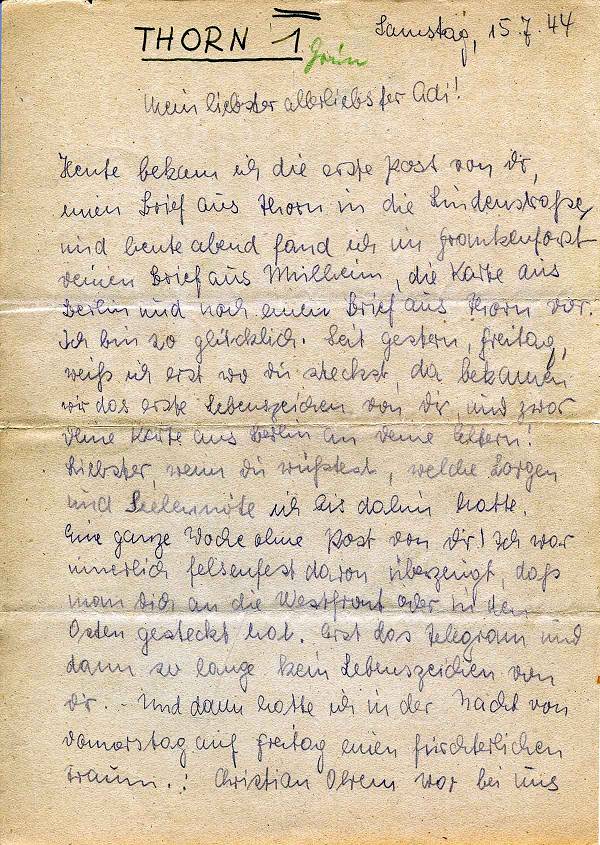 THORN 1
Grün
Samstag, 15.7.44
Mein liebster allerliebster Adi!
Heute bekam ich die erste Post von Dir,
einen Brief aus Thorn in die Lindenstraße,
und heute abend fand ich im Frankenforst
Deinen Brief aus Mülheim, die Karte aus
Berlin und noch einen Brief aus Thorn vor.
Ich bin so glücklich. Seit gestern, Freitag,
weiß ich erst wo Du steckst, da bekamen
wir das erste Lebenszeichen von Dir, und zwar
Deine Karte aus Berlin an Deine Eltern!
Liebster, wenn Du wüßtest, welche Sorgen
und Seelennöte ich bis dahin hatte.
Eine ganze Woche ohne Post von Dir! Ich war
innerlich felsenfest davon überzeugt, daß
man Dich an die Westfront oder in den
Osten gesteckt hat. Erst das Telegram und
dann so lange kein Lebenszeichen von
Dir. - Und dann hatte ich in der Nacht von
Donnerstag auf Freitag einen fürchterlichen
Traum.: Christian Ohrem war bei uns